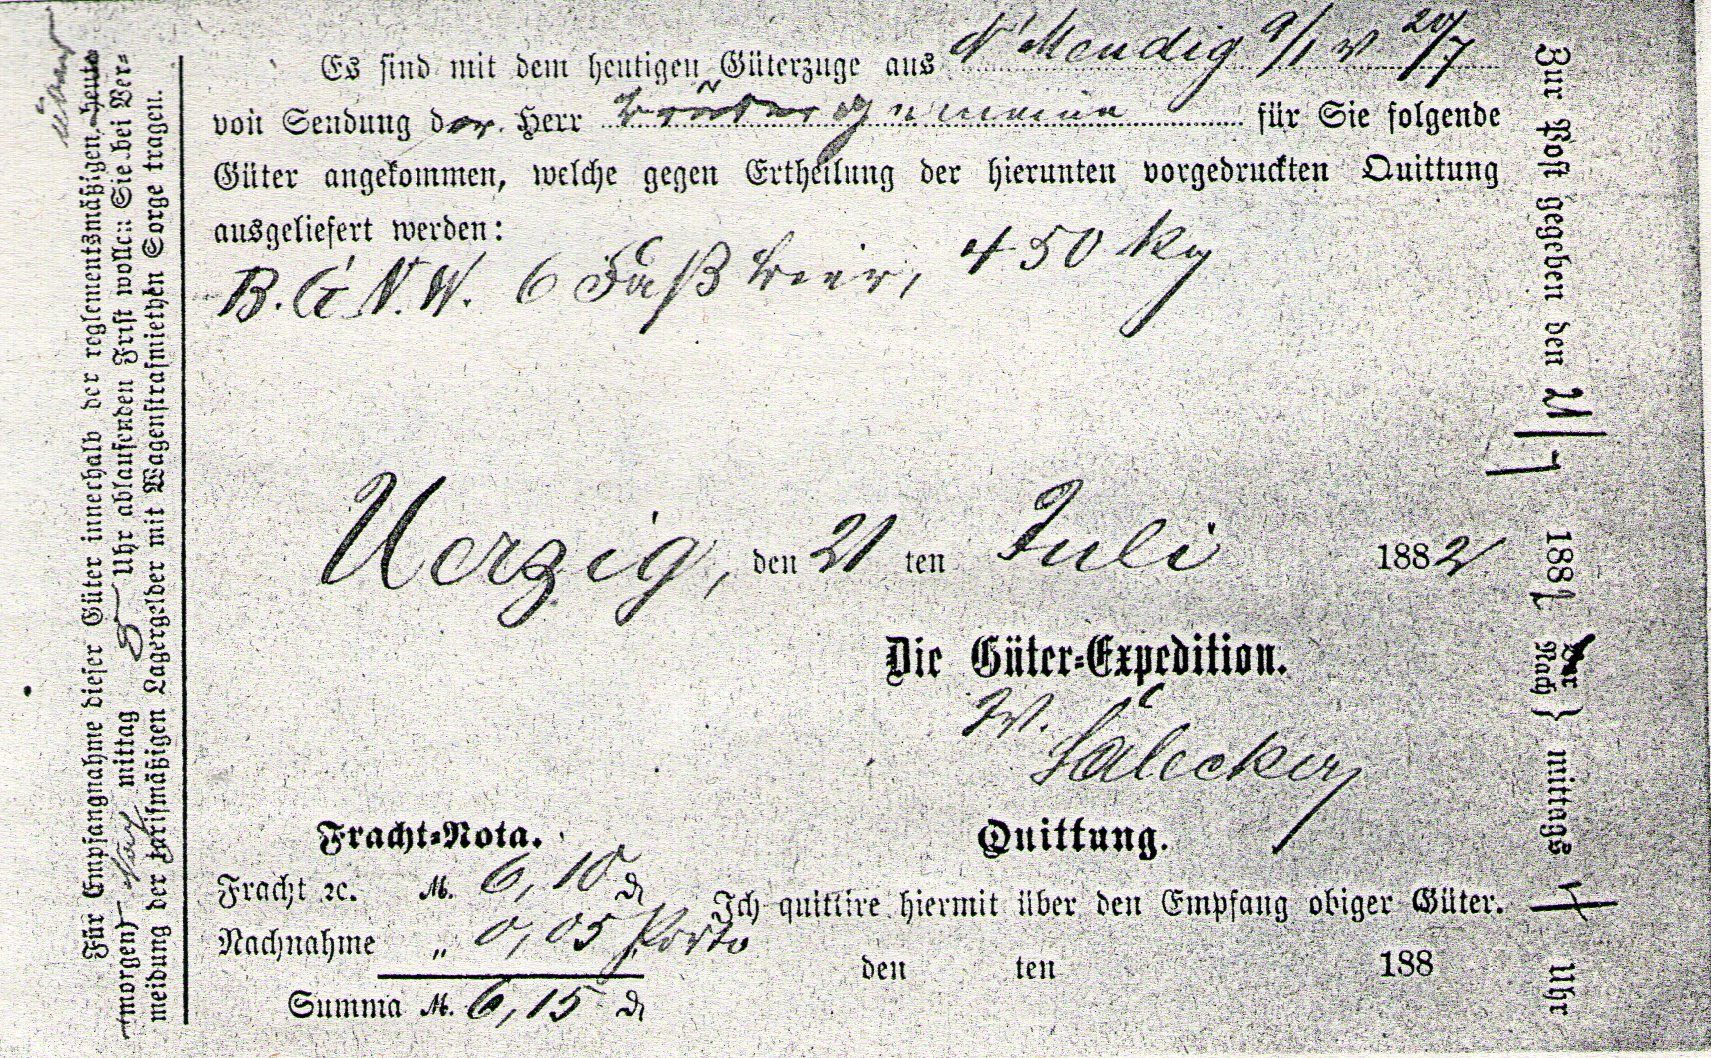 Es sind mit dem heutigen Güterzuge aus N Mendig 9/1 v 20/7
von Sendung der Herr Brüdergemeine für Sie folgende
Güter angekommen, welche gegen Ertheilung der hierunten vorgedruckten Quittung
ausgeliefert werden:
B. G. N. W. 6 Faß Bier, 450 kg
Uerzig, den 21 ten Juli 1882
Die Güter-Expedition.
W.
Fracht-Nota.
Fracht ꝛc. M. 6,10 ₰
Nachnahme „ 0,05 Porto
Summa M. 6,15 ₰
Quittung.
Ich quittire hiermit über den Empfang obiger Güter.
den ten 188
Für Empfangnahme dieser Güter innerhalb der reglementsmäßigen, heute
(morgen) Nach mittag 5 Uhr ablaufenden Frist wollen Sie bei Ver-
meidung der tarifmäßigen Lagergelder mit Wagenstrafmiethen Sorge tragen.
Zur Post gegeben den 21/7 1882 Vor Nach } mittags Uhr